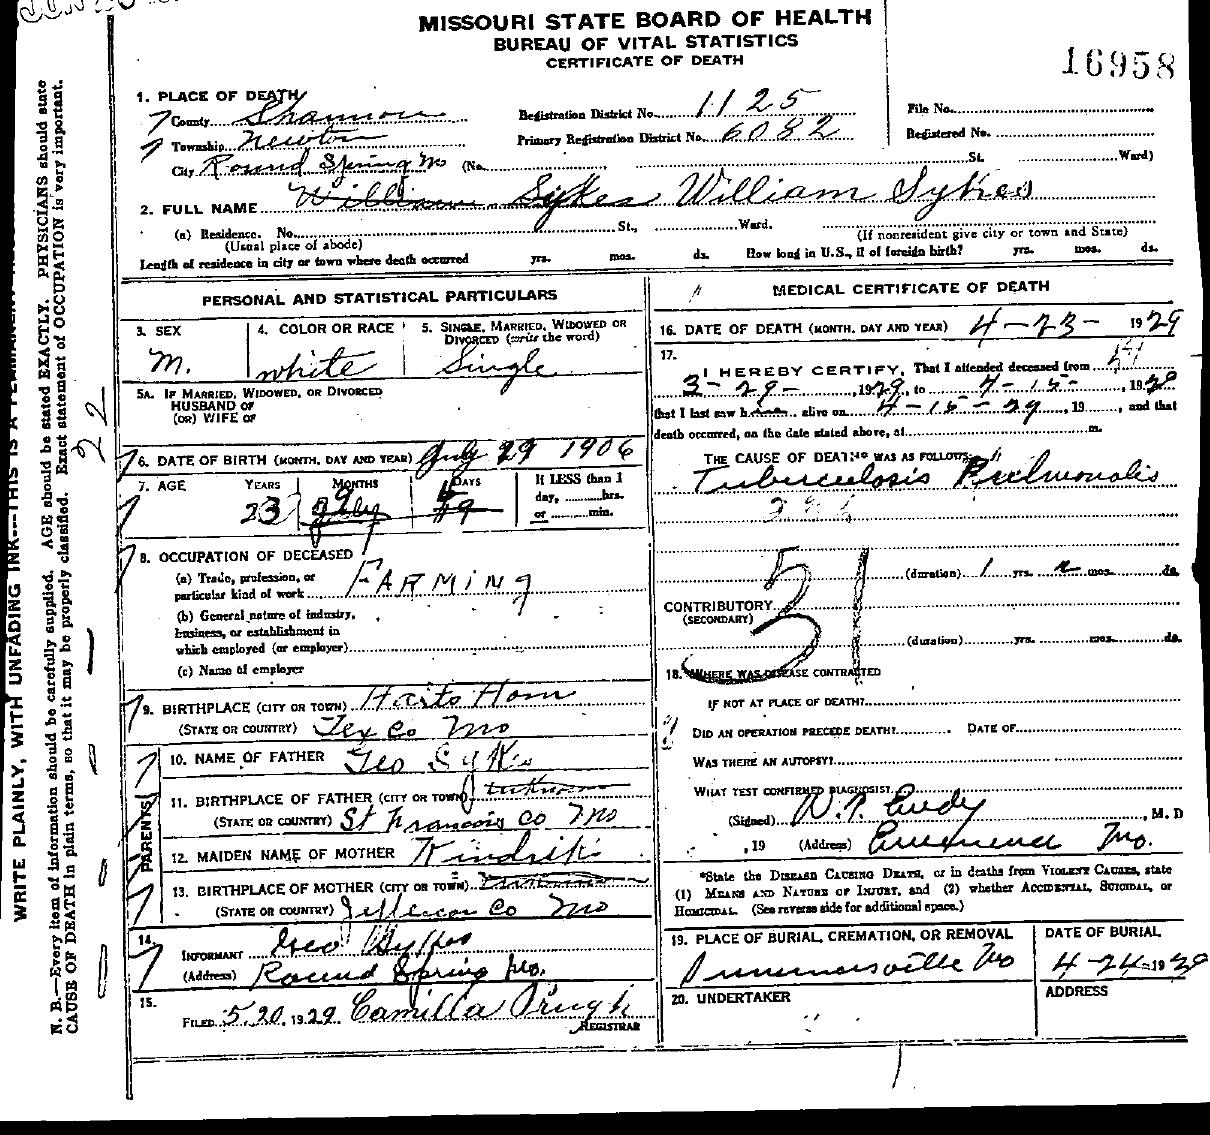 MISSOURI STATE BOARD OF HEALTH
BUREAU OF VITAL STATISTICS
CERTIFICATE OF DEATH
16958
1. PLACE OF DEATH
County Shannon
Registration District No. 1125
File No.
Township Newton
Primary Registration District No. 6082
Registered No.
City Round Spring Mo (No. St. Ward)
2. FULL NAME William Sykes William Sykes
(a) Residence. No. St., Ward.
(Usual place of abode)
(If nonresident give city or town and State)
Length of residence in city or town where death occurred yrs. mos. ds. How long in U.S., if of foreign birth? yrs. mos. ds.
PERSONAL AND STATISTICAL PARTICULARS
3. SEX
M.
4. COLOR OR RACE
white
5. SINGLE, MARRIED, WIDOWED OR
DIVORCED (write the word)
Single
5A. IF MARRIED, WIDOWED, OR DIVORCED
HUSBAND OF
(OR) WIFE OF
6. DATE OF BIRTH (MONTH, DAY AND YEAR) July 29 1906
7. AGE YEARS MONTHS DAYS
23 9
If LESS than 1
day, hrs.
or min.
8. OCCUPATION OF DECEASED
(a) Trade, profession, or
particular kind of work FARMING
(b) General nature of industry,
business, or establishment in
which employed (or employer)
(c) Name of employer
9. BIRTHPLACE (CITY OR TOWN)
(STATE OR COUNTRY) Tex Co Mo
PARENTS
10. NAME OF FATHER Geo Sykes
11. BIRTHPLACE OF FATHER (CITY OR TOWN) unknown
(STATE OR COUNTRY) St Francois Co Mo
12. MAIDEN NAME OF MOTHER
13. BIRTHPLACE OF MOTHER (CITY OR TOWN) unknown
(STATE OR COUNTRY) Jefferson Co Mo
14.
INFORMANT Geo Sykes
(Address) Round Spring Mo.
15.
FILED 5.20, 1929 Camilla Pugh
REGISTRAR
MEDICAL CERTIFICATE OF DEATH
16. DATE OF DEATH (MONTH, DAY AND YEAR) 4-23- 1929
17.
I HEREBY CERTIFY, That I attended deceased from
3-29-, 1929, to 4-15-, 1929
that I last saw him alive on 4-15-29, 19, and that
death occurred, on the date stated above, at m.
THE CAUSE OF DEATH* WAS AS FOLLOWS:
Tuberculosis Pulmonalis
31
(duration) 1 yrs. 2 mos. ds.
CONTRIBUTORY
(SECONDARY)
(duration) yrs. mos. ds.
18. WHERE WAS DISEASE CONTRACTED
IF NOT AT PLACE OF DEATH?
DID AN OPERATION PRECEDE DEATH? DATE OF
WAS THERE AN AUTOPSY?
WHAT TEST CONFIRMED DIAGNOSIS?
(Signed) , M. D
, 19 (Address) Eminence Mo.
*State the DISEASE CAUSING DEATH, or in deaths from VIOLENT CAUSES, state
(1) MEANS AND NATURE OF INJURY, and (2) whether ACCIDENTAL, SUICIDAL, or
HOMICIDAL. (See reverse side for additional space.)
19. PLACE OF BURIAL, CREMATION, OR REMOVAL
Summersville Mo
DATE OF BURIAL
4-24-1929
20. UNDERTAKER
ADDRESS
WRITE PLAINLY, WITH UNFADING INK---THIS IS A PERMANENT
N. B.—Every item of information should be carefully supplied. AGE should be stated EXACTLY. PHYSICIANS should state
CAUSE OF DEATH in plain terms, so that it may be properly classified. Exact statement of OCCUPATION is very important.
22